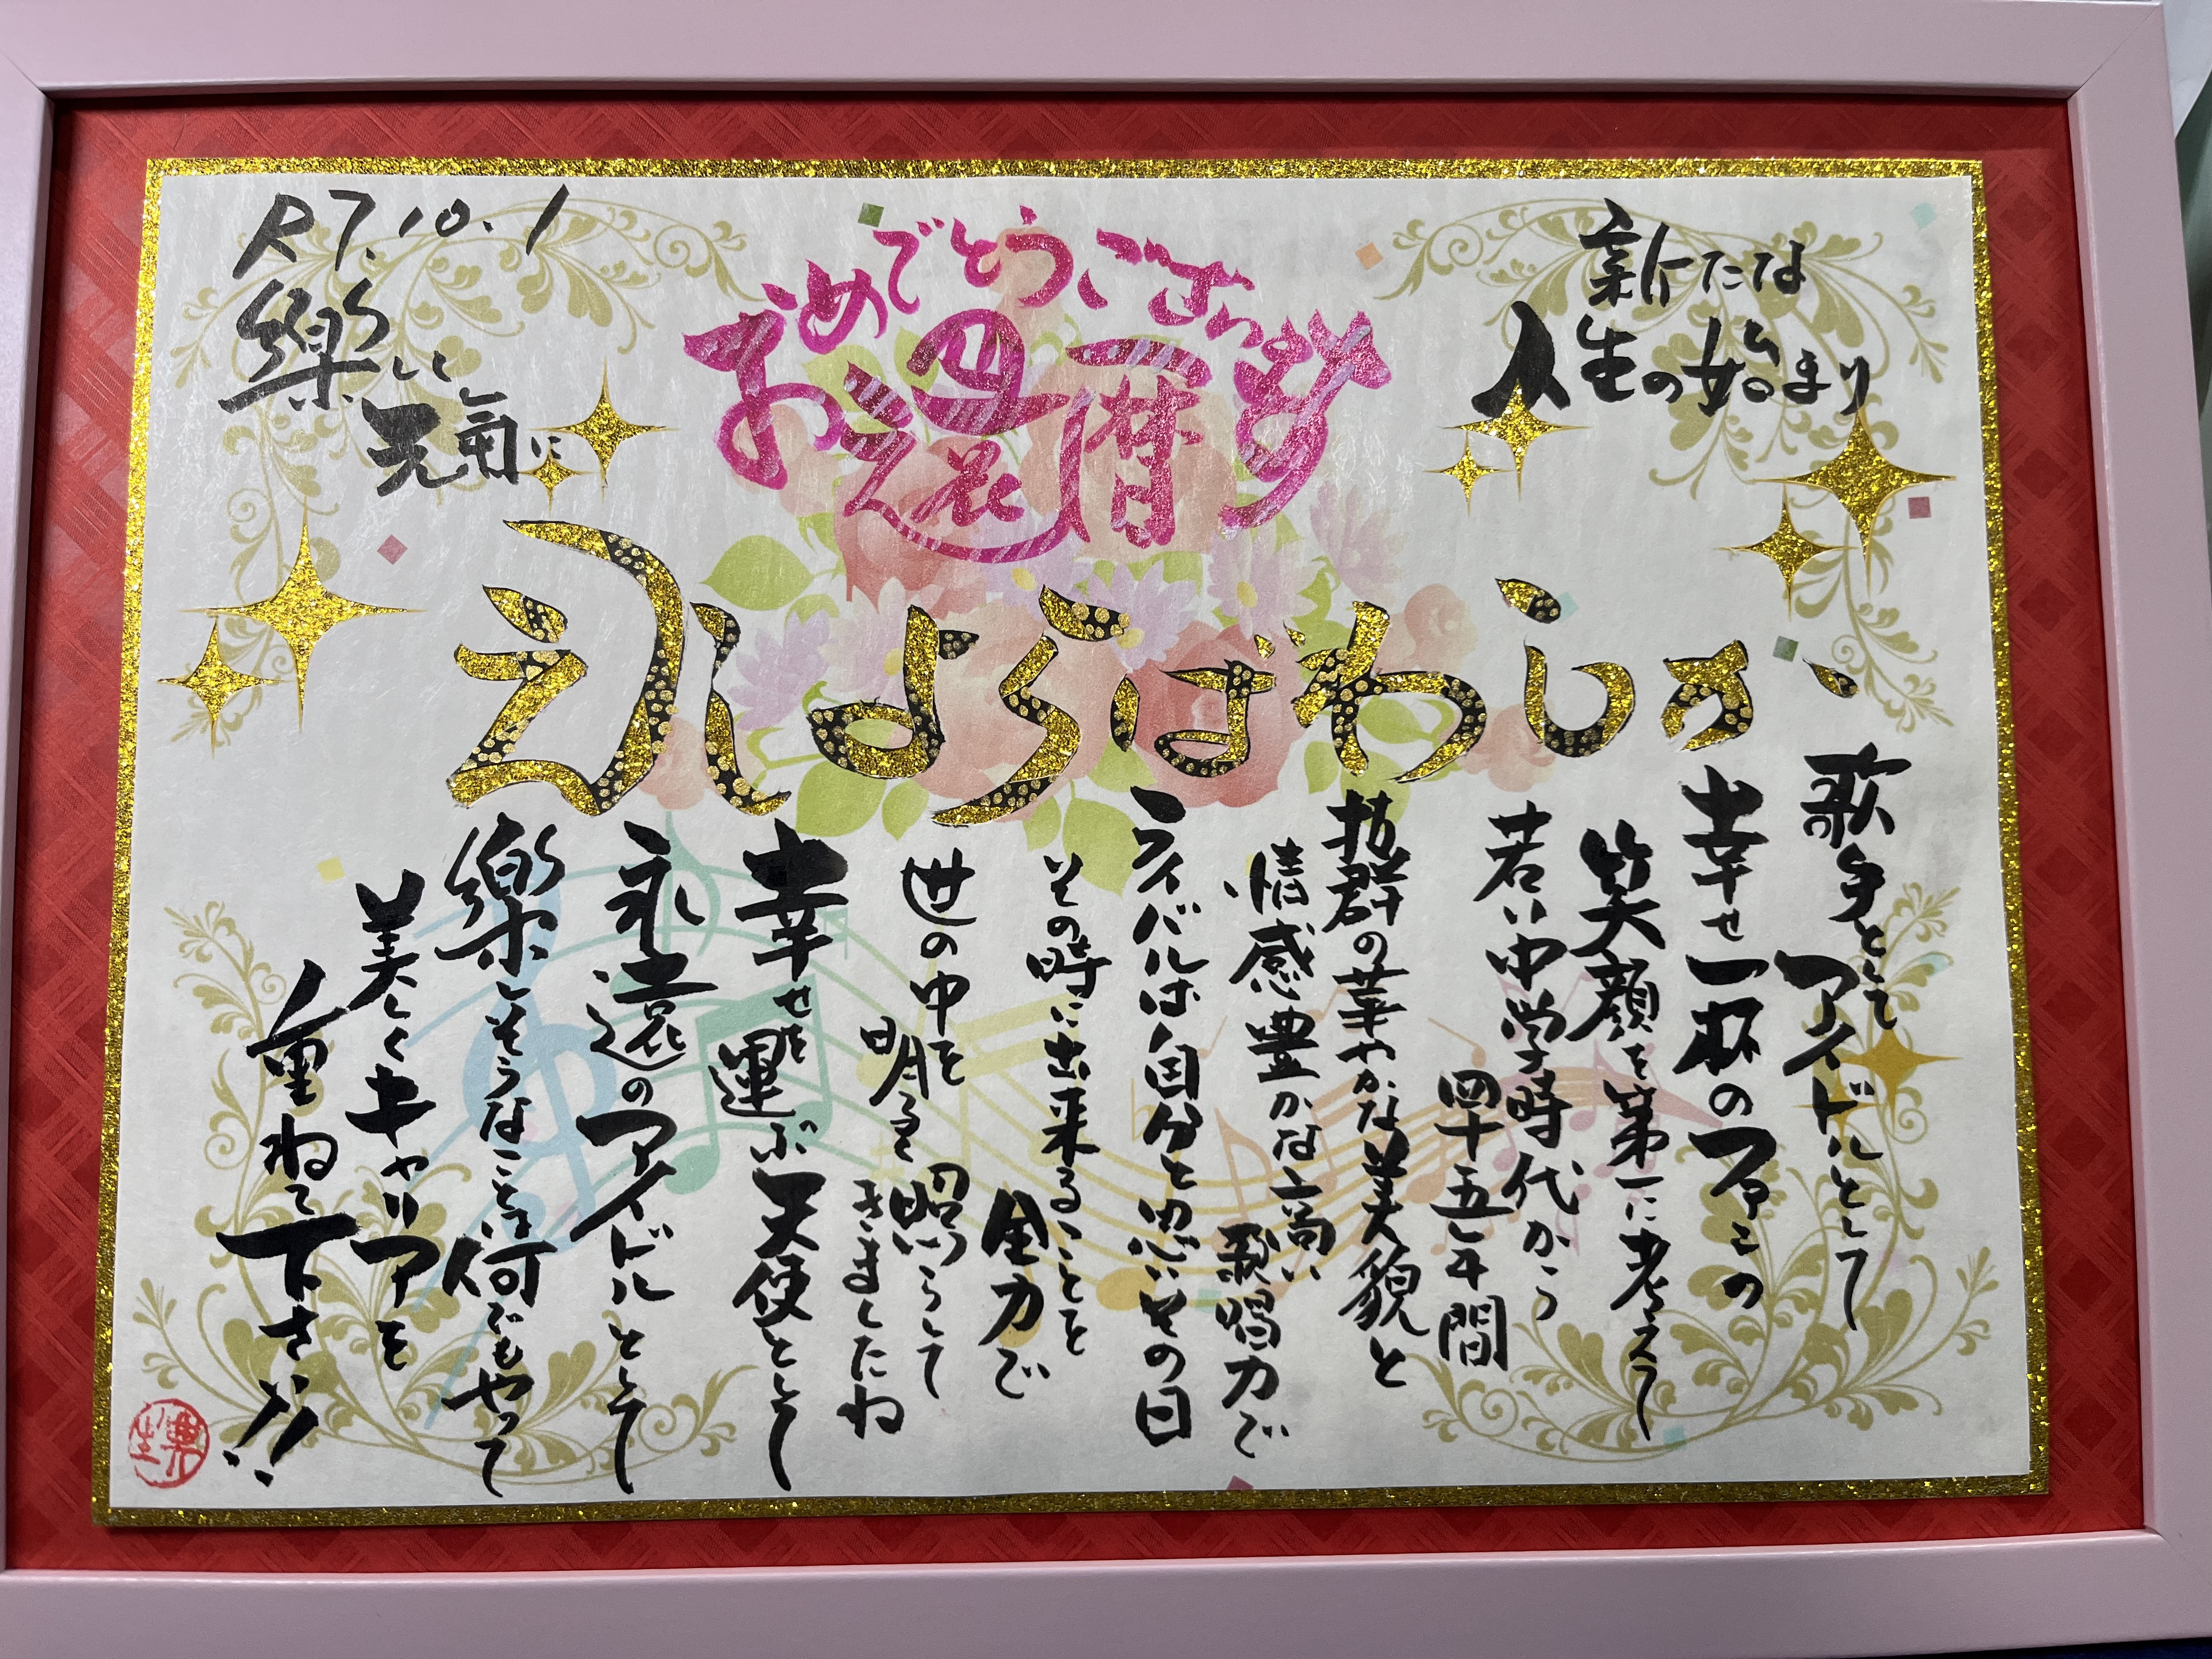 新たな
人生の始まり
おめでとうございます
お還暦
R7.10.1
樂しく
元氣に
かしわばらよしえ
歌手として
アイドルとして
幸せ一杯のファンの
笑顔を第一に考えて
若い中学時代から
四十五年間
抜群の華やかな美貌と
情感豊かな高い
歌唱力で
ライバルは自分と思いその日
その時に出来ることを
全力で
世の中を
明るく照らして
きましたね
幸せを運ぶ天使として
永遠のアイドルとして
樂しそうなことは何でもやって
美しくキャリアを
重ねて下さい!!